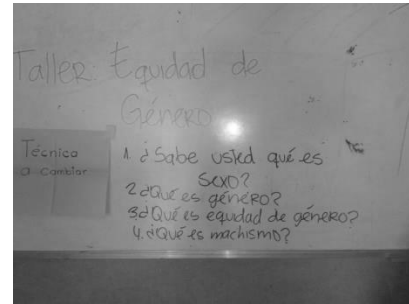 Taller: Equidad de
Género
Técnica
a cambiar
1 ¿Sabe usted qué es
Sexo?
2 ¿Qué es género?
3 ¿Qué es equidad de género?
4. ¿Qué es machismo?